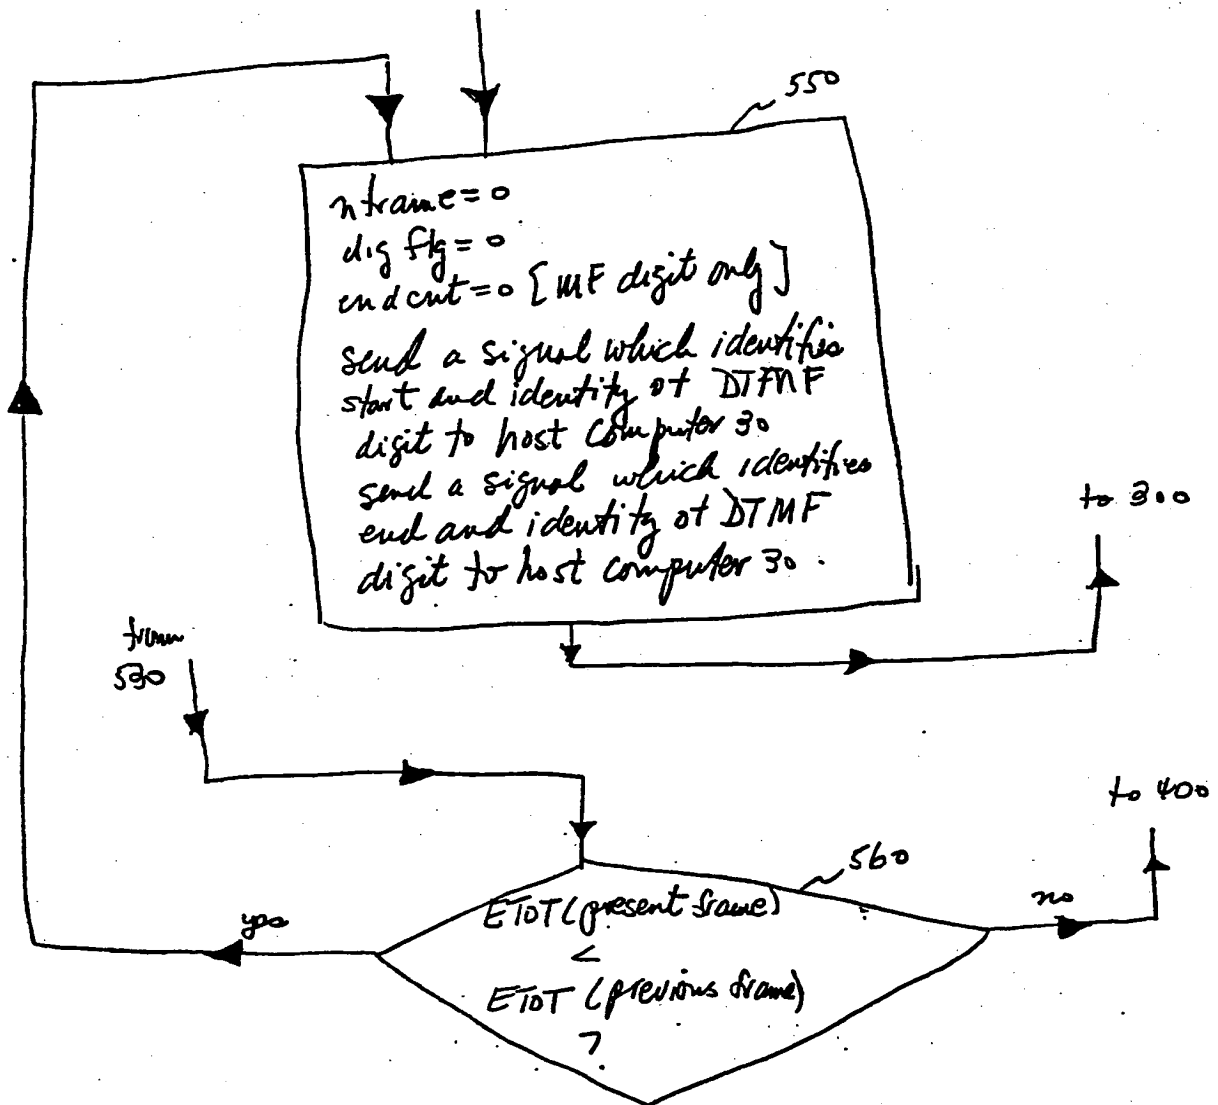 550
nframe=0
dig flg=0
endcnt=0 [MF digit only]
send a signal which identifies
start and identity of DTMF
digit to host computer 30
send a signal which identifies
end and identity of DTMF
digit to host computer 30.
to 300
from
530
to 400
560
yes
ETOT (present frame)
no
<
ETOT (previous frame)
?